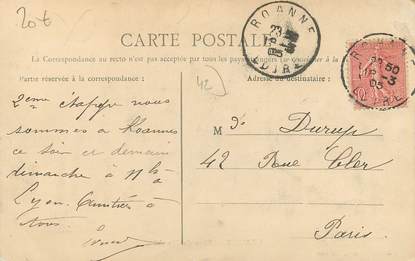 20€
CARTE POSTALE
La Correspondance au recto n'est pas acceptée par tous les pays étrangers
Partie réservée à la correspondance :
Adresse du destinataire :
42
ROANNE
LOIRE
50
2eme étappe nous
sommes a Roanne
ce soir et demain
dimanche à 11h
Lyon. Amitiés à
tous.
M
Durup
42 Rue Cler
Paris.